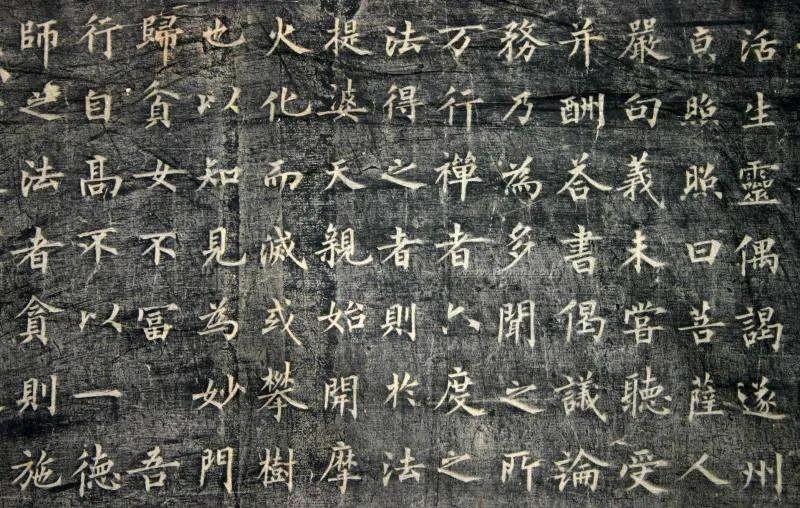 活生靈偶謁遂州
亰照照曰菩薩人
嚴句義未嘗聽受
并酬荅書偈議論
務乃為多聞之所
万行禪者六度之
法得之者則於法
提婆天親始開摩
火化而滅或攀樹
也以知見為妙門
歸貧女不冨 吾
行自髙不以一德
師之法者貧則施